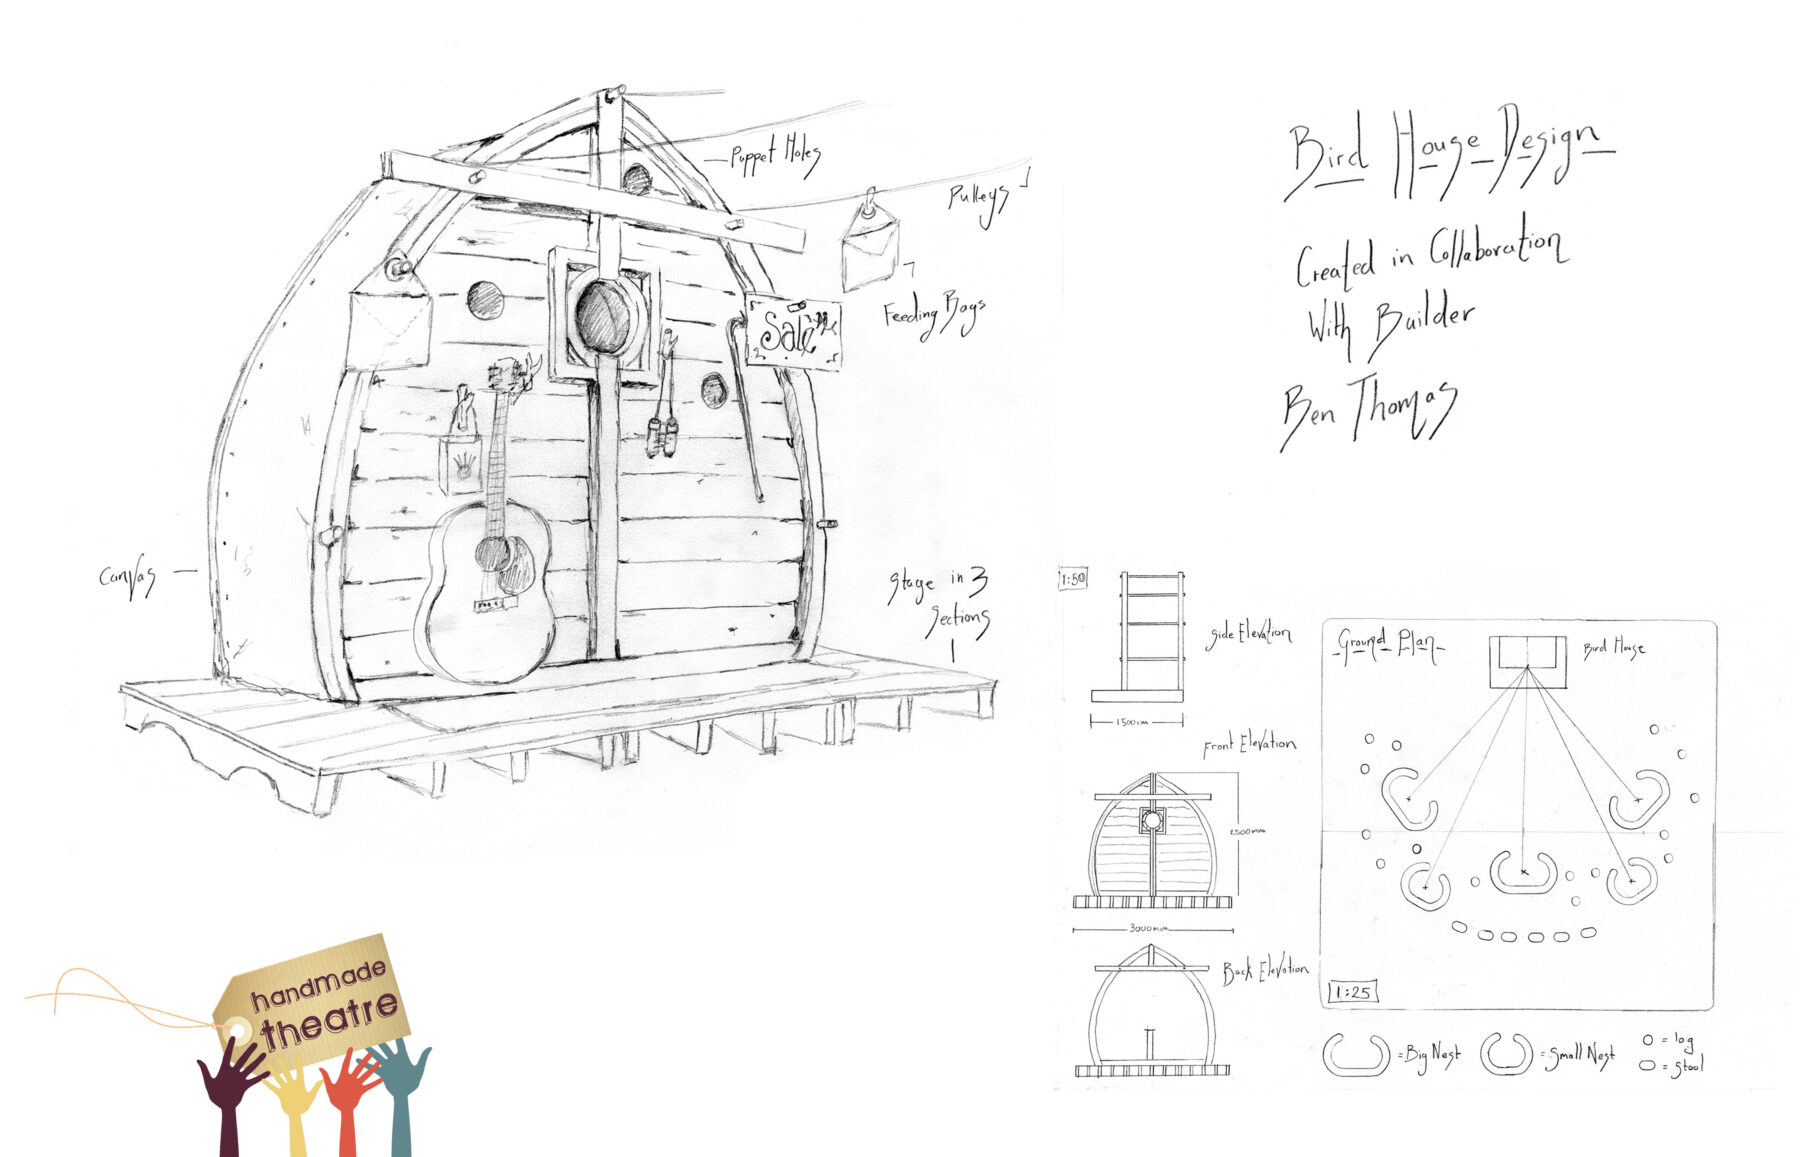 Puppet Holes
Pulleys
Feeding Bags
Sale
Canvas
Stage in 3
Sections
Bird House Design
Created in Collaboration
With Builder
Ben Thomas
1:50
Side Elevation
1500cm
Front Elevation
2500mm
3000mm
Back Elevation
Ground Plan
Bird House
1:25
= Big Nest
= Small Nest
= log
= Stool
handmade
theatre